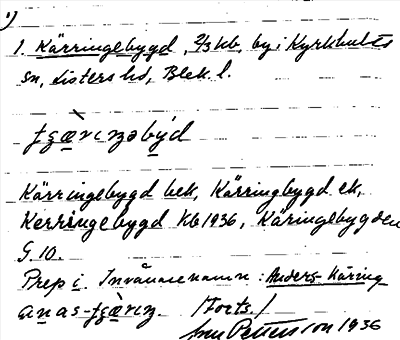 1)
1. Kärringebygd, 2/3 kb, by i Kyrkhults
sn, Listers hd, Blek. l.
Kärringebygd bek, Kärringbygd ek,
Kerringebygd kb 1936, Käringebygden
G. 10.
Prep i. Invånarenamn: Anders Käring
/Forts./
Pettersson 1936